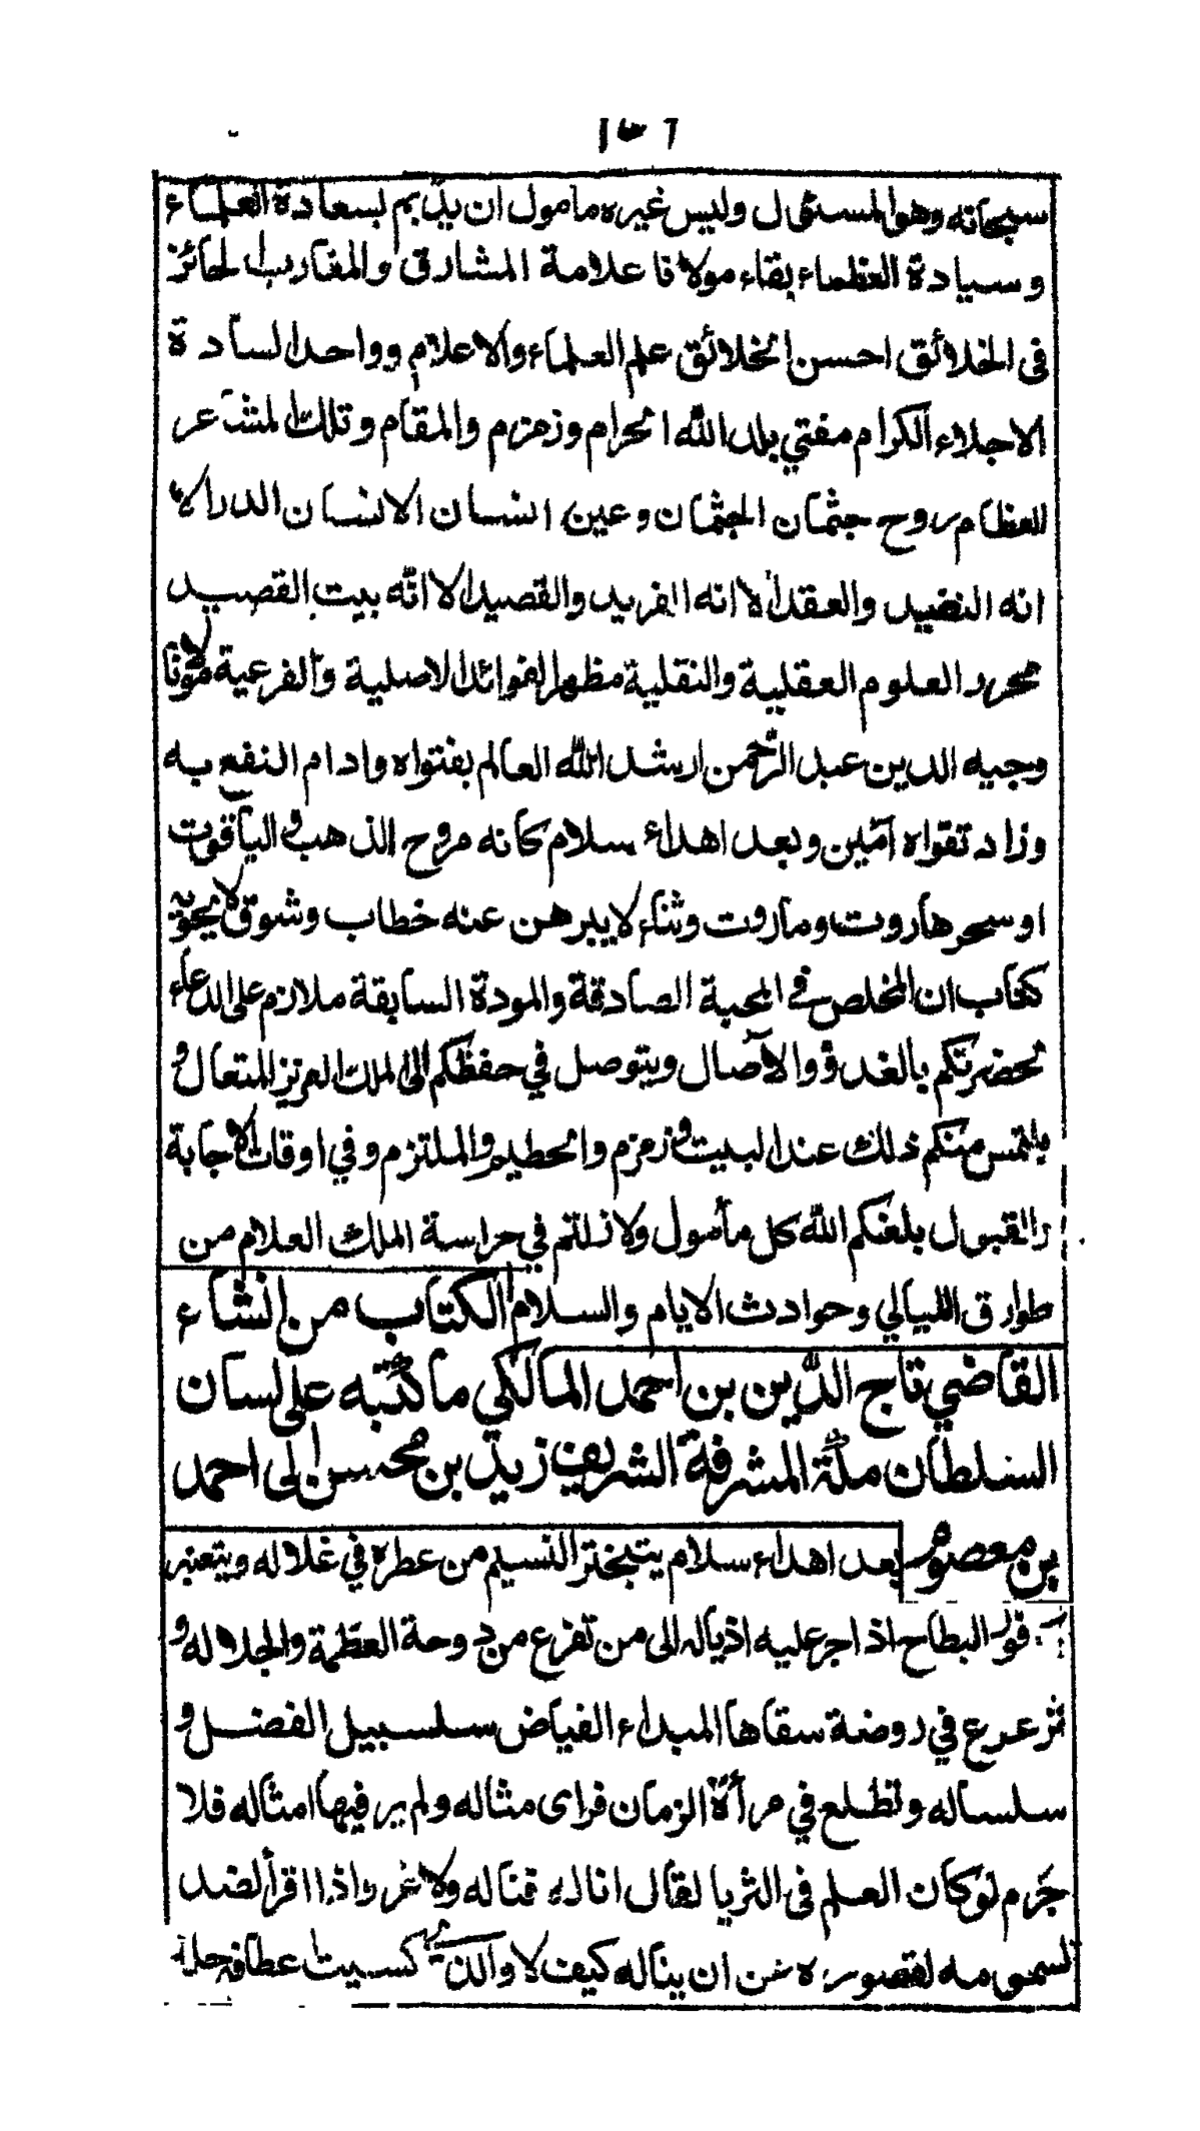 ١٣٦
سبحانه وهو المسئول وليس غيره مامول ان يديم لسعادة العلماء
وسيادة العظماء بقاء مولانا علامة المشارق والمغارب الحائز
فى الخلائق احسن الخلائق علم العلماء والاعلام وواحد السادة
الاجلاء الكرام مفتي بلد الله الحرام وزمزم والمقام وتلك المشاعر
العظام روح جثمان الجثمان وعين انسان الانسان الدر الا
انه النضيد والعقد الا انه الفريد والقصيد الا انه بيت القصيد
محرر العلوم العقلية والنقلية مظهر الفوائد الاصلية والفرعية مولانا
وجيه الدين عبد الرحمن ارشد الله العالم بفتواه وادام النفع به
وزاد تقواه آمين وبعد اهداء سلام كانه مروح الذهب والياقوت
او سحر هاروت وماروت وثناء لا يبرهن عنه خطاب وشوق لا يحويه
كتاب ان المخلص في المحبة الصادقة والمودة السابقة ملازم على الدعاء
لحضرتكم بالغدو والآصال ويتوصل في حفظكم الى الملك العزيز المتعال و
يلتمس منكم ذلك عند البيت وزمزم والحطيم والملتزم وفي اوقات الاجابة
والقبول بلغكم الله كل مأمول ولا زلتم في حراسة الملك العلام من
طوارق الليالي وحوادث الايام والسلام الكتاب من انشاء
القاضي تاج الدين بن احمد المالكي ما كتبه على لسان
السلطان مكة المشرفة الشريف زيد بن محسن الى احمد
بن معصوم بعد اهداء سلام يتبختر النسيم من عطره في غلاله ويتعنبر
البطاح اذا جر عليه اذياله الى من تفرع من دوحة العظمة والجلاله و
ترعرع في روضة سقاها المبداء الفياض سلسبيل الفضل و
سلساله وتطلع في مرأة الزمان فراى مثاله ولم ير فيها امثاله فلا
جرم لو كان العلم فى الثريا لقال انا له فناله ولا غرو اذا اقر الضد
لسمو مه لقصوره عن ان يناله كيف لا والذى كسيت عطافه حلة